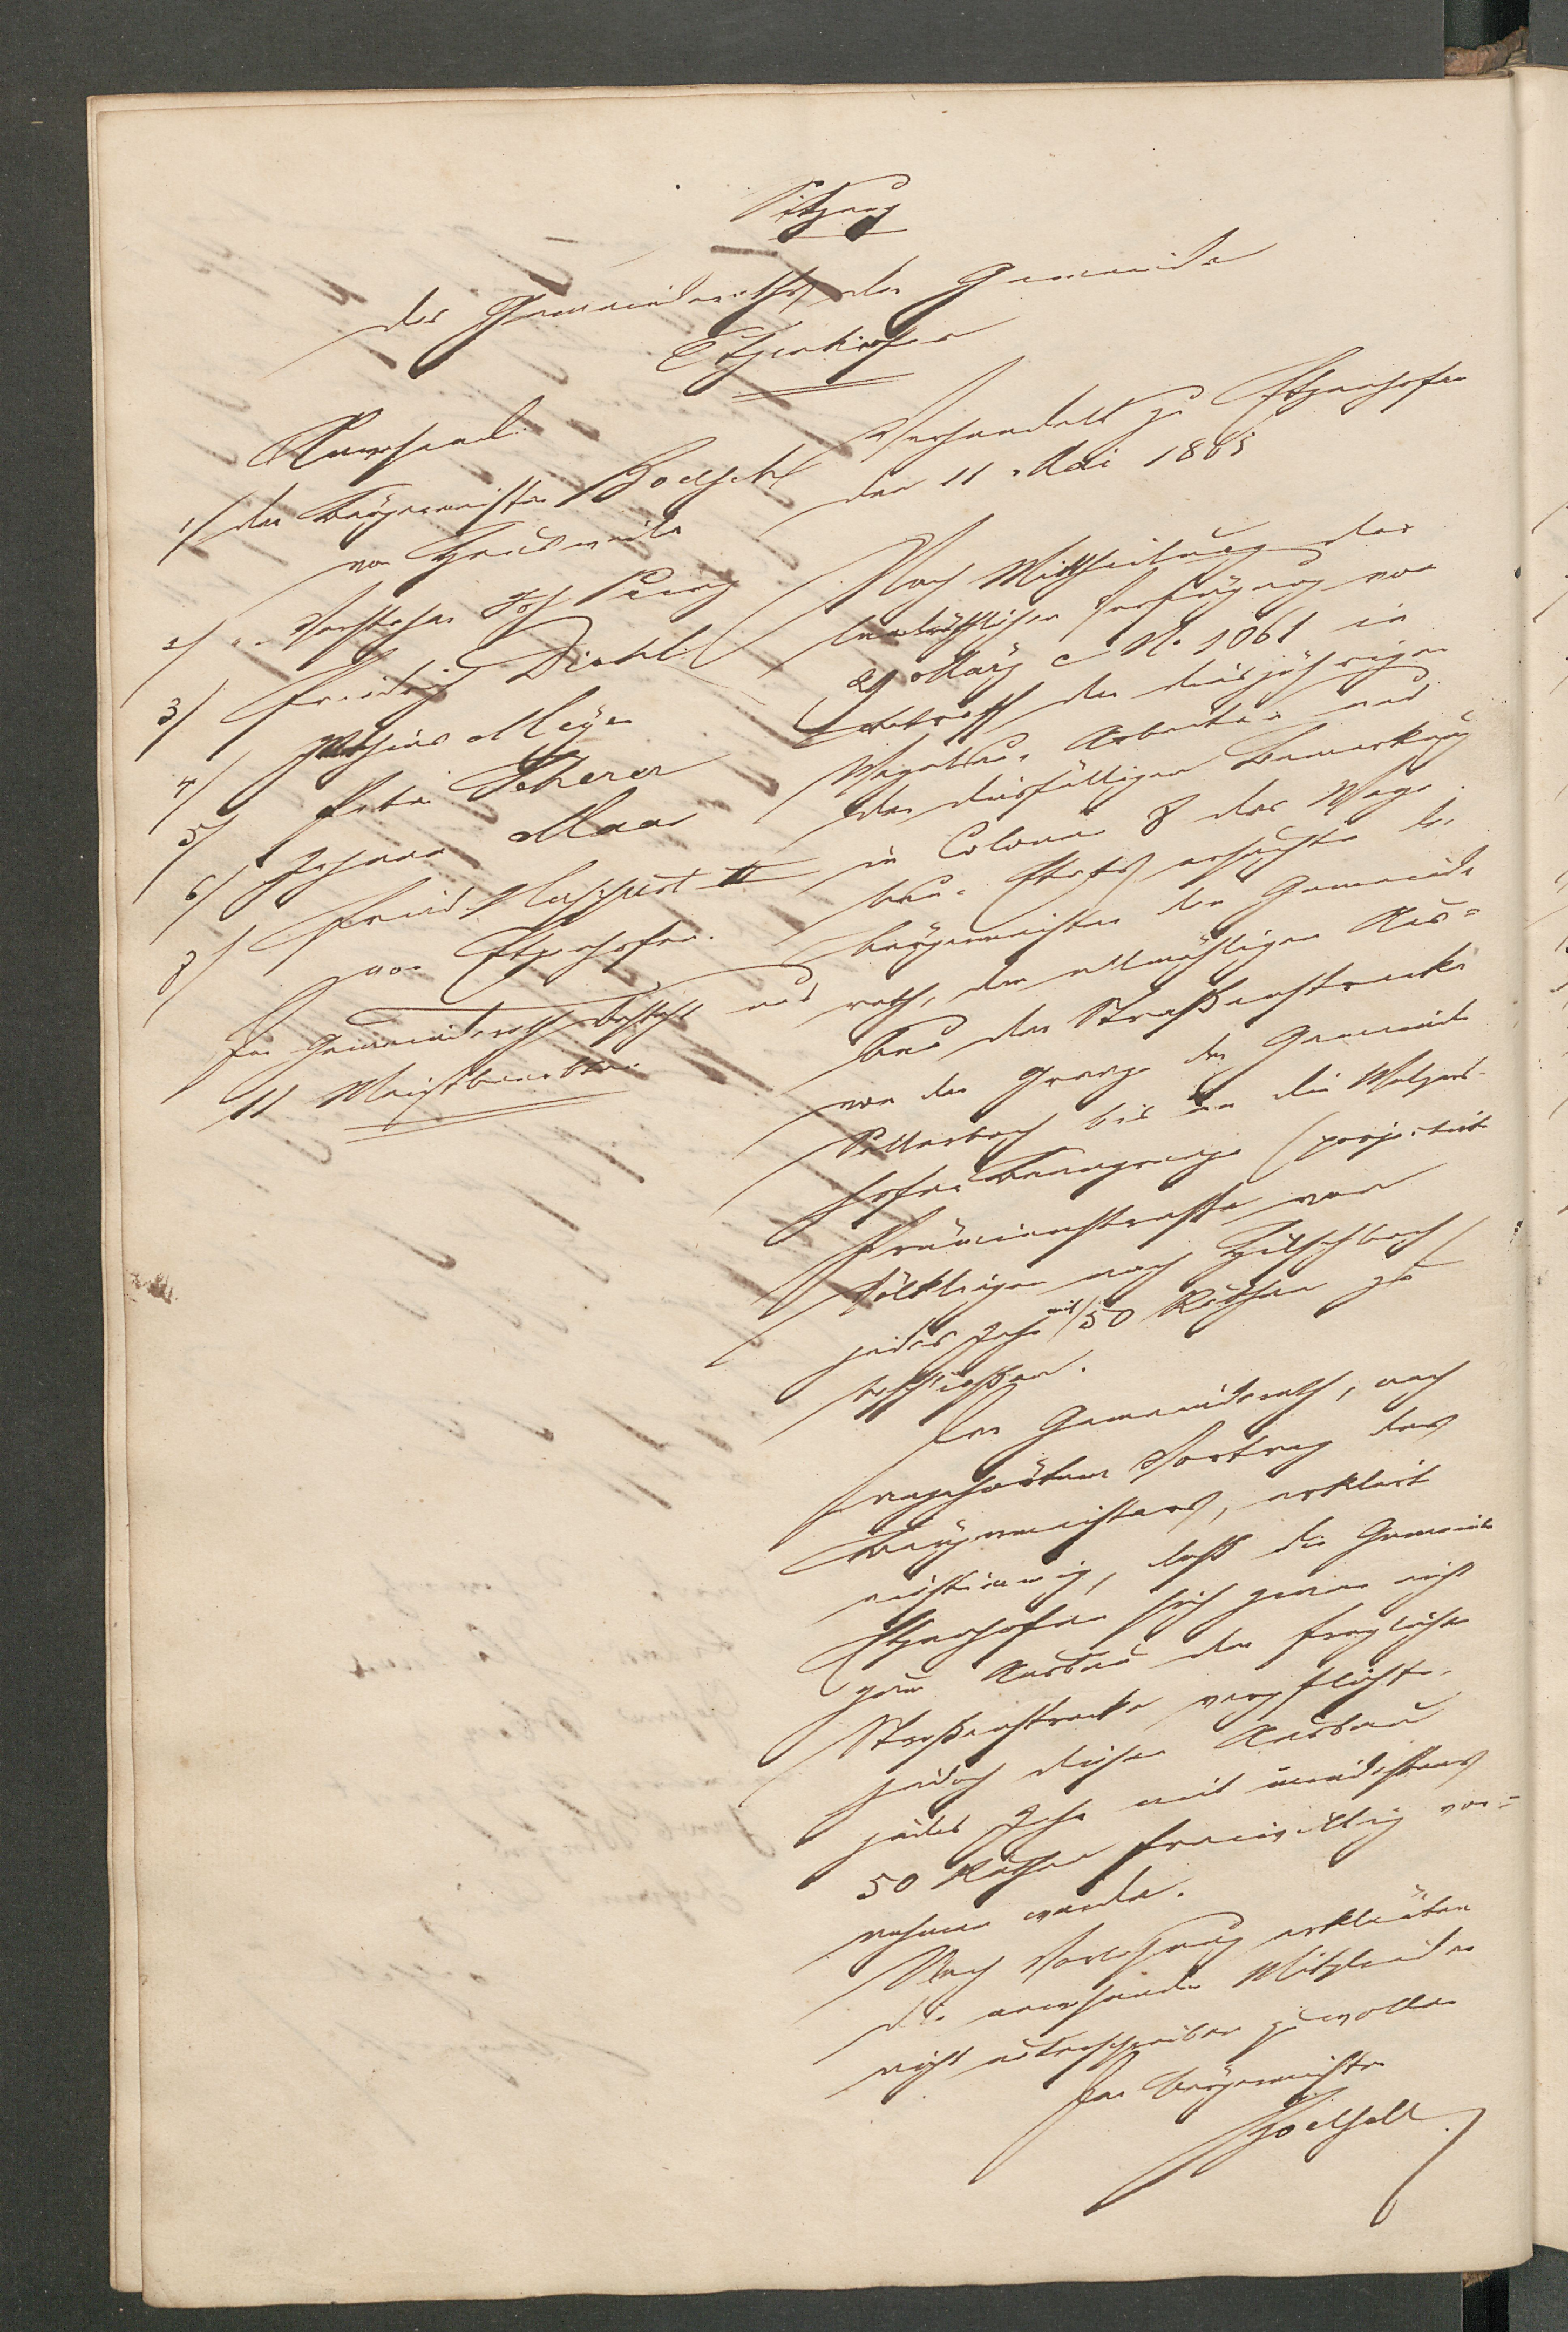 Sitzung
des Gemeinderaths der Gemeinde
Etzenhofen
Anwesend
1/ der Bürgermeister
von Heusweiler
2/ " Vorsteher Joh
3/ Friedrich Diehl
4/ Mathias Meyer
5/ Peter Scherer
6/ Johann Maas
7/ Fried II
von Etzenhofen.
Der Gemeinderath besteht aus
11 Meistbeerbten.
Verhandelt zu Etzenhofen
den 11. Mai 1865
Nach Mittheilung der
landräthlichen Verfügung von
29 März c N. 1061 in
Betreff der diesjährigen
Wegebau-Arbeiten und
der diesfälligen Bemerkung
in Colonne 8 des Wege-
bau-Etats ersuchte der
Bürgermeister den Gemeinde
rath, den allmähligen Aus-
bau der Straßenstrecke
von der Grenze der Gemeinde
Sellerbach bis an die
hofer Banngrenze (projectirte
Prämienstraße von
Völklingen nach Hilschbach)
jedes Jahr mit 50 Ruthen zu
beschließen.
Der Gemeinderath, nach
angehörtem Vortrag des
Bürgermeisters, erklärt
einstimmig, daß die Gemeinde
Etzenhofen sich zwar nicht
zum Ausbau der fraglichen
Straßenstrecke verpflichte,
jedoch diesen Ausbau
jedes Jahr mit mindestens
50 Ruthen freiwillig vor-
nehmen werde.
Nach Vorlesung erklärten
die anwesenden Mitglieder
nicht unterschreiben zu wollen
Der Bürgermeister